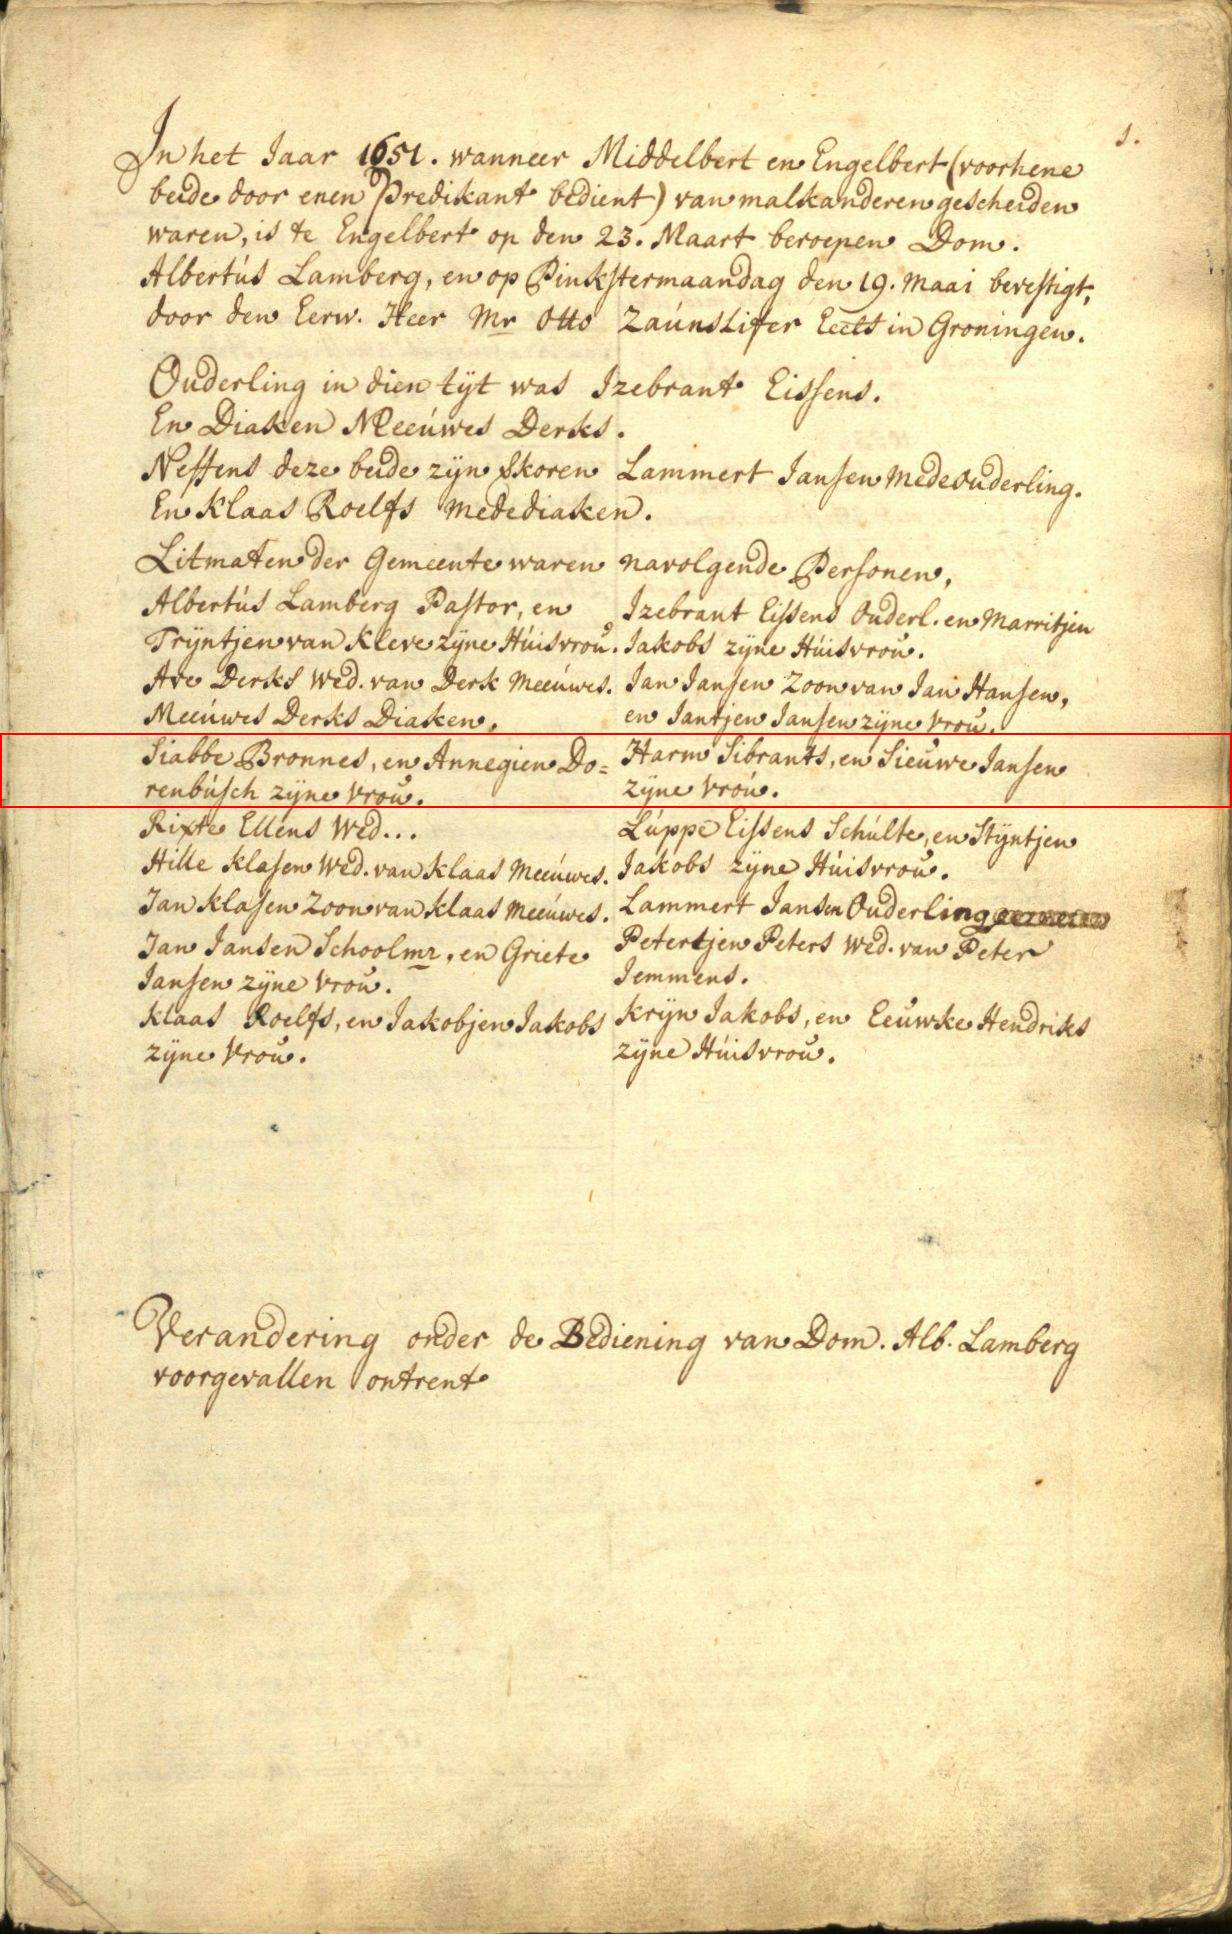 1.
In het Jaar 1651. wanneer Middelbert en Engelbert (voorhene
beide door enen Predikant bedient) van malkanderen gescheiden
waren, is te Engelbert op den 23. Maart beroepen Dom.
Albertús Lamberg, en op Pinkstermaandag den 19. Maai bevestigt,
door den Eerw. Heer Mr Otto Zaúnslifer Eccts in Groningen.
Ouderling in dien tÿt was Izebrant Eissens.
En Diaken Meeúwes Derks.
Neffens deze beide zÿn Skoren Lammert Jansen medeouderling.
En Klaas Roelfs medediaken.
Litmaten der Gemeente waren navolgende Personen,
Albertús Lamberg Pastor, en
Trÿntjen van Kleve zÿne Húisvroú.
Ave Derks Wed. van Derk Meeúwes.
Meeúwes Derks Diaken.
Siabbe Bronnes, en Annegien Do=
renbúsch zÿne Vroú.
Rixte Ellens Wed...
Hille Klasen Wed. van Klaas Meeúwes.
Jan Klasen Zoon van Klaas Meeúwes.
Jan Jansen Schoolmr, en Griete
Jansen zÿne Vroú.
Klaas Roelfs, en Jakobjen Jakobs
zÿne Vroú.
Izebrant Eissens Ouderl. en Marritjen
Jakobs zÿne Húisvroú.
Jan Jansen Zoon van Jan Hansen,
en Jantjen Jansen zÿne Vroú.
Harm Sibrants, en Sieuwe Jansen
zÿne Vroú.
Lúppe Eissens Schúlte, en Stÿntjen
Jakobs zÿne Húisvroú.
Lammert Jansen Ouderling
Petertjen Peters Wed. van Peter
Jemmens.
Krÿn Jakobs, en Eeúwke Hendriks
zÿne Húisvroú.
Verandering onder de Bediening van Dom. Alb. Lamberg
voorgevallen ontrent